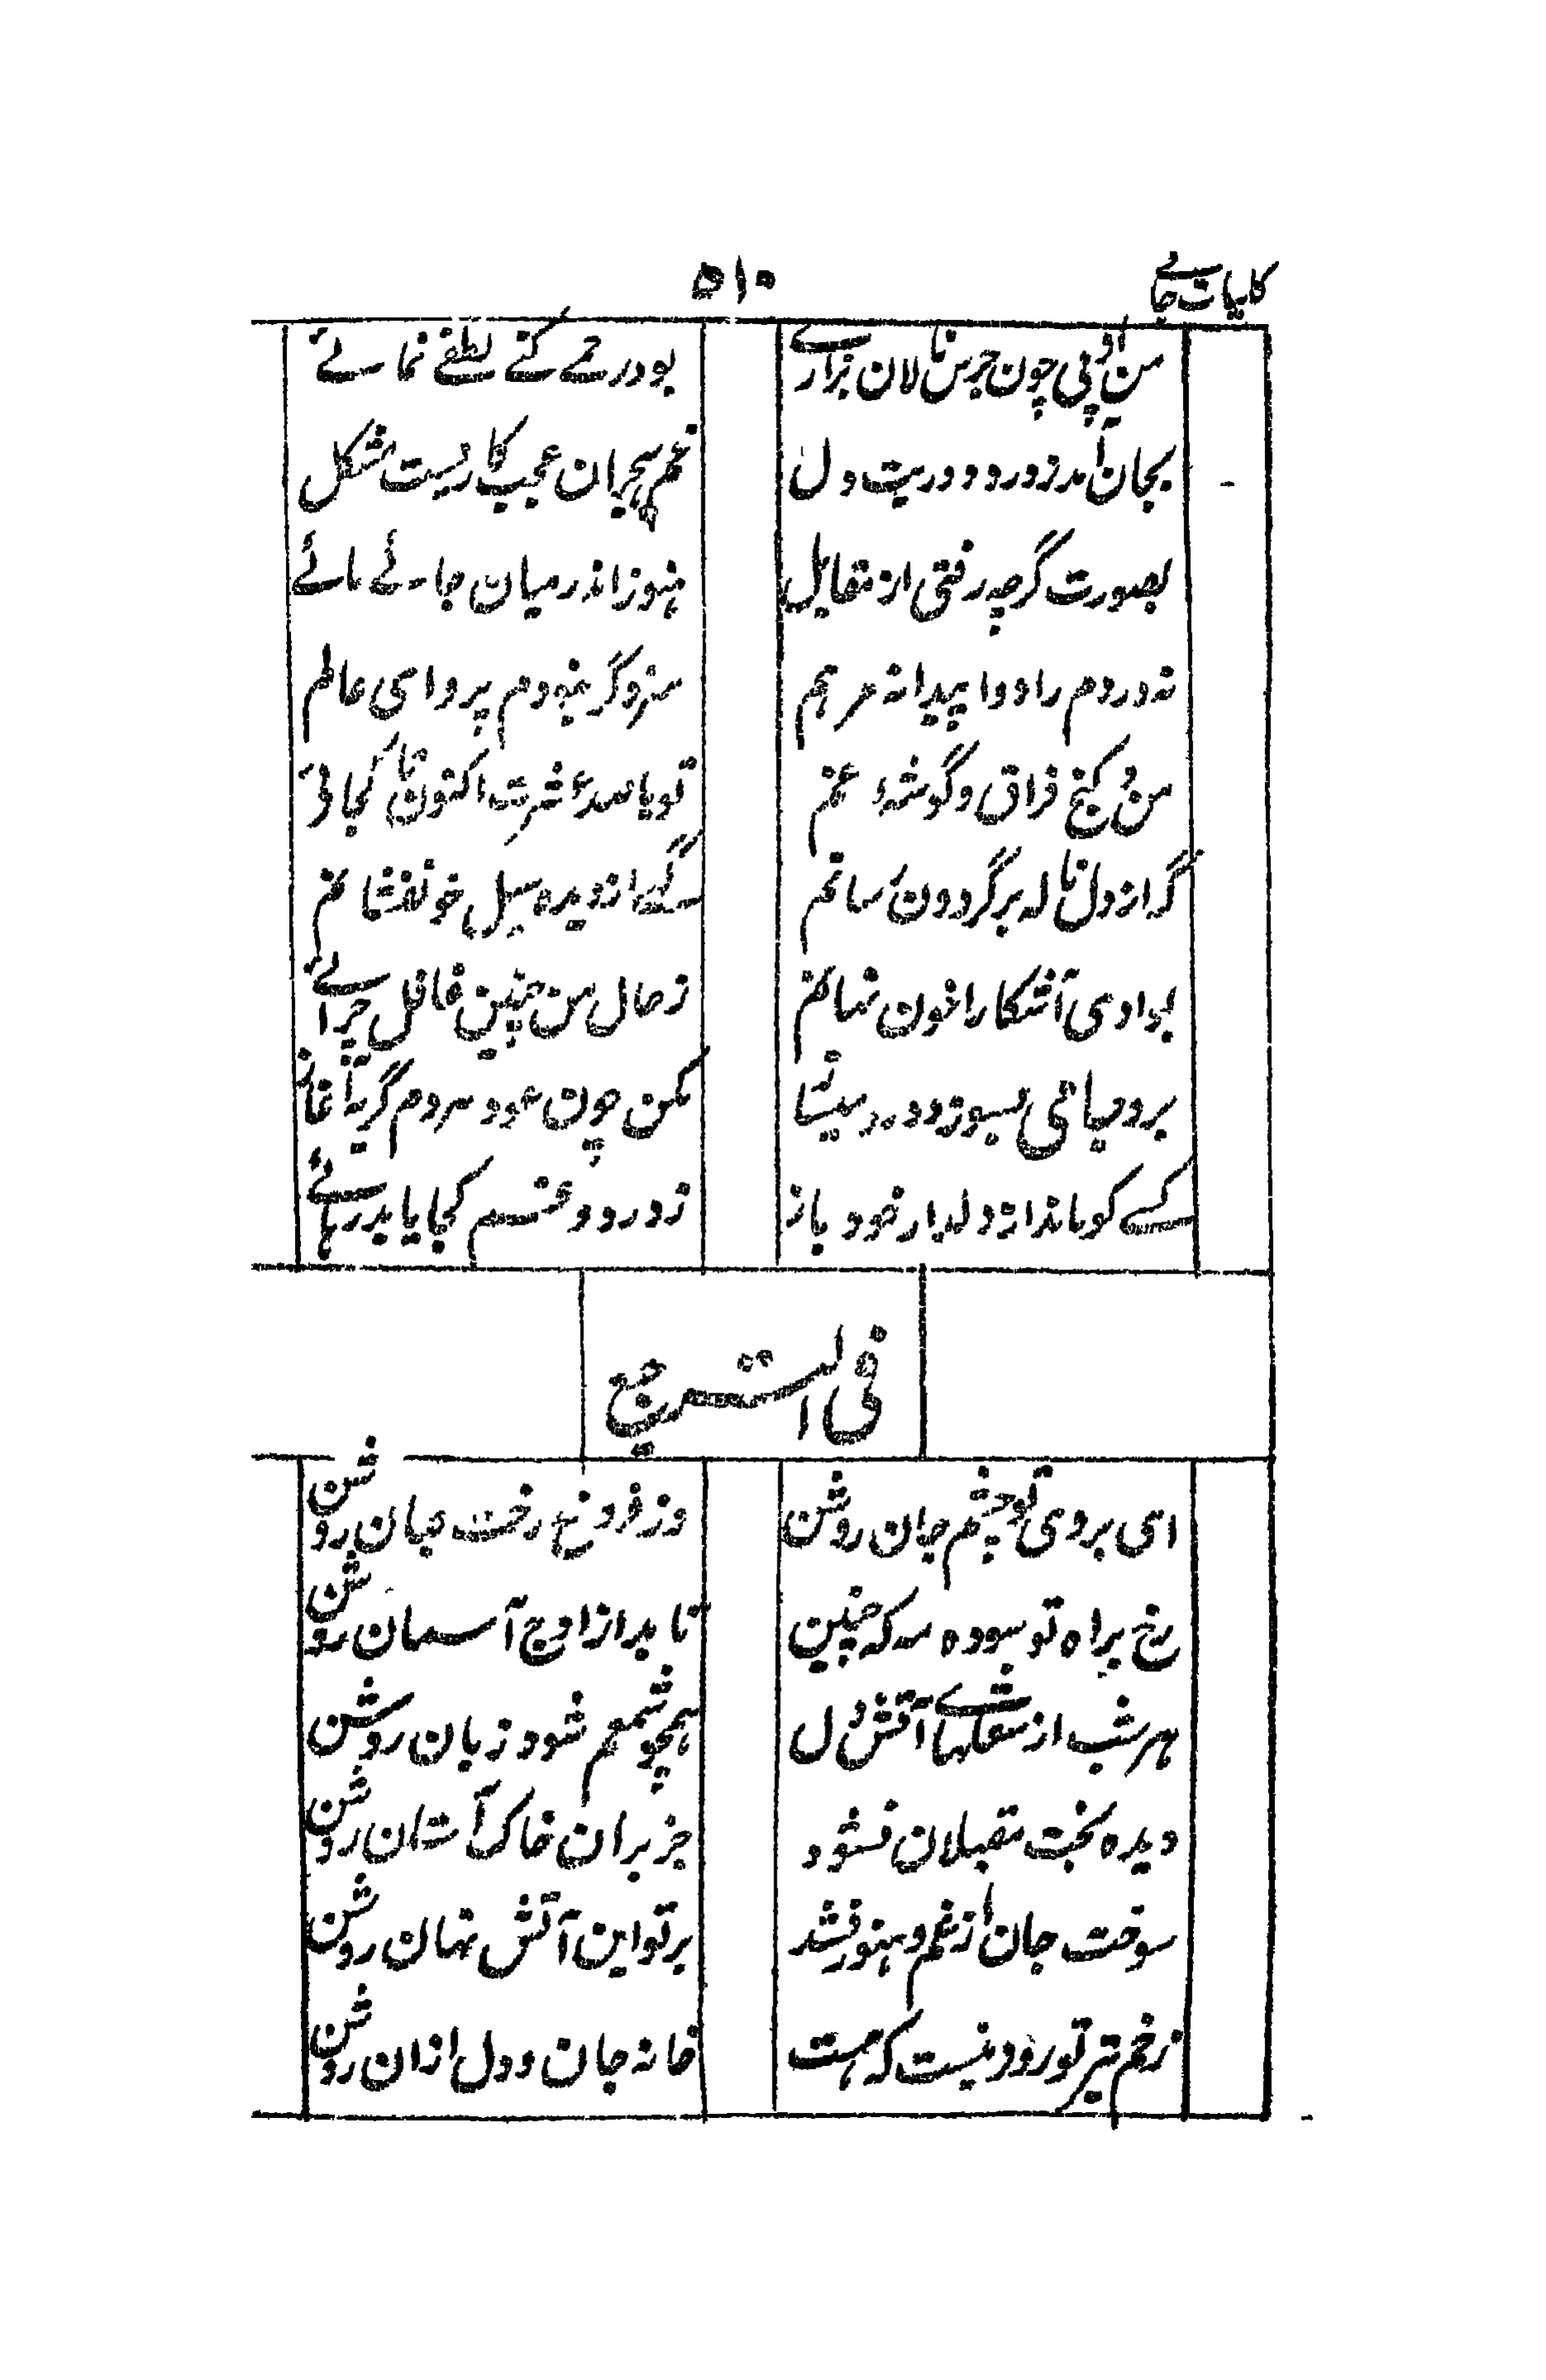 کلیات جامے
۵۱۰
من از پی چون جرس نالان بزارے
بودرحمے کنے لطفے نمائے
بجان آمد ز درد دوریت دل
غم ہجران عجب کاریست مشکل
بصورت گرچہ رفتی از مقابل
ہنوز اندر میان جانے مائے
نہ دردم را دوا پیدا نہ مرہم
سزد گر نبودم پروای عالم
من و کنج فراق و گوشۂ غم
تو با صد عشرت اکنون تا کجائی
گر از دل نالہ بر گردون رسانم
گہے از دیدہ سیل خونفشانم
بدادی آشکارا خون نہانم
ز حال من چنین غافل چرائے
برو جامی بسوز و درد میساز
مکن چون عود ہر دم گریہ آغاز
کسے کو ماند از دلدار خود باز
ز درد و غم کجا یابد رہائے
فی الترجیع
ای بروی تو چشم جان روشن
وز فروغ رخت جہان روشن
رخ براہ تو سودہ مہ کہ چنین
تابد از اوج آسمان روشن
ہر شب از شعلہاے آتش دل
ہمچو شمعم شود زبان روشن
دیدہ بخت مقبلان نشود
جز بران خاک آستان روشن
سوخت جان از غم و ہنوز نشد
بر تو این آتش نہان روشن
زخم تیر تو روزنیست کہ ہست
خانہ جان و دل ازان روشن